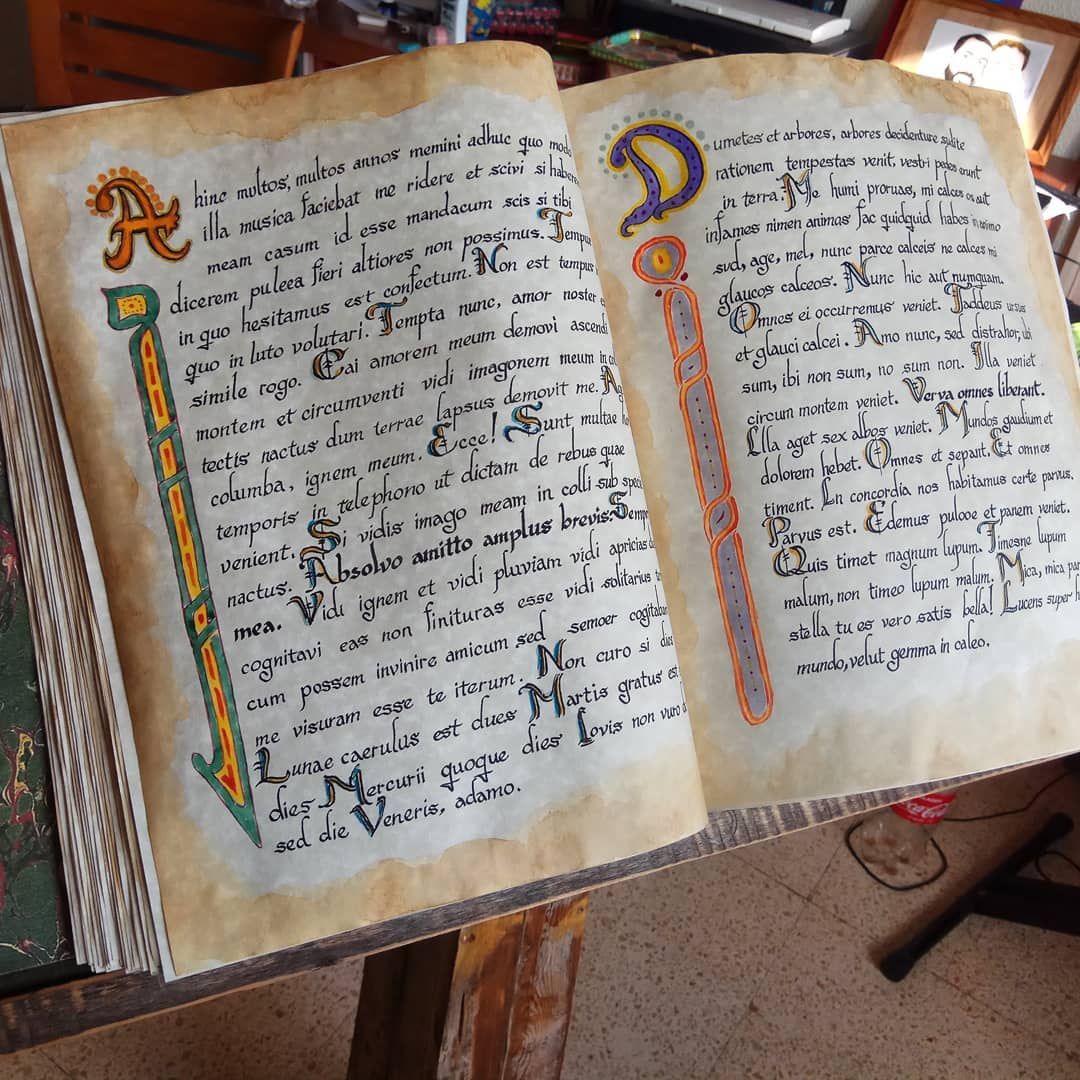 A hinc multos, multos annos memini adhuc quo modo
illa musica faciebat me ridere et scivi si haberem
meam casum id esse mandacum scis si tibi
dicerem puleea fieri altiores non possimus. Tempus
in quo hesitamus est confectum. Non est tempus
quo in luto volutari. Tempta nunc, amor noster
simile rogo. Cai amorem meum demovi ascendi
montem et circumventi vidi imagonem meum in
tectis nactus dum terrae lapsus demovit me.
columba, ignem meum. Ecce! Sunt multae
temporis in telephono ut dictam de rebus quae
venient. Si vidis imago meam in colli sub
nactus. Absolvo amitto amplus brevis. Semper
mea. Vidi ignem et vidi pluviam vidi apricias
cognitavi eas non finituras esse vidi solitarius
cum possem invinire amicum sed semoer
me visuram esse te iterum. Non curo si dies
Lunae caerulus est dues Martis gratus est
dies Mercurii quoque dies Iovis non vuro
sed die Veneris, adamo.
Dumetes et arbores, arbores decidenture
rationem tempestas venit, vestri pedes erunt
in terra. Me humi proruas, mi calces os aut
infames nimen animas fac quidguid habes in animo
sud, age, mel, nunc parce calceis ne calces mi
glaucos calceos. Nunc hic aut numquam.
Omnes ei occurremus veniet. Taddeus ursus
et glauci calcei. Amo nunc, sed distrahor, ubi
sum, ibi non sum, no sum non. Illa veniet
circum montem veniet. Verva omnes liberant.
Llla aget sex albos veniet. Mundos gaudium et
dolorem hebet. Omnes et separt. Et omnes
timent. In concordia nos habitamus certe parvus.
Parvus est. Edemus pulooe et panem veniet.
Quis timet magnum lupum. Timesne lupum
malum, non timeo lupum malum. Mica, mica
stella tu es vero satis bella! Lucens super
mundo, velut gemma in caleo.